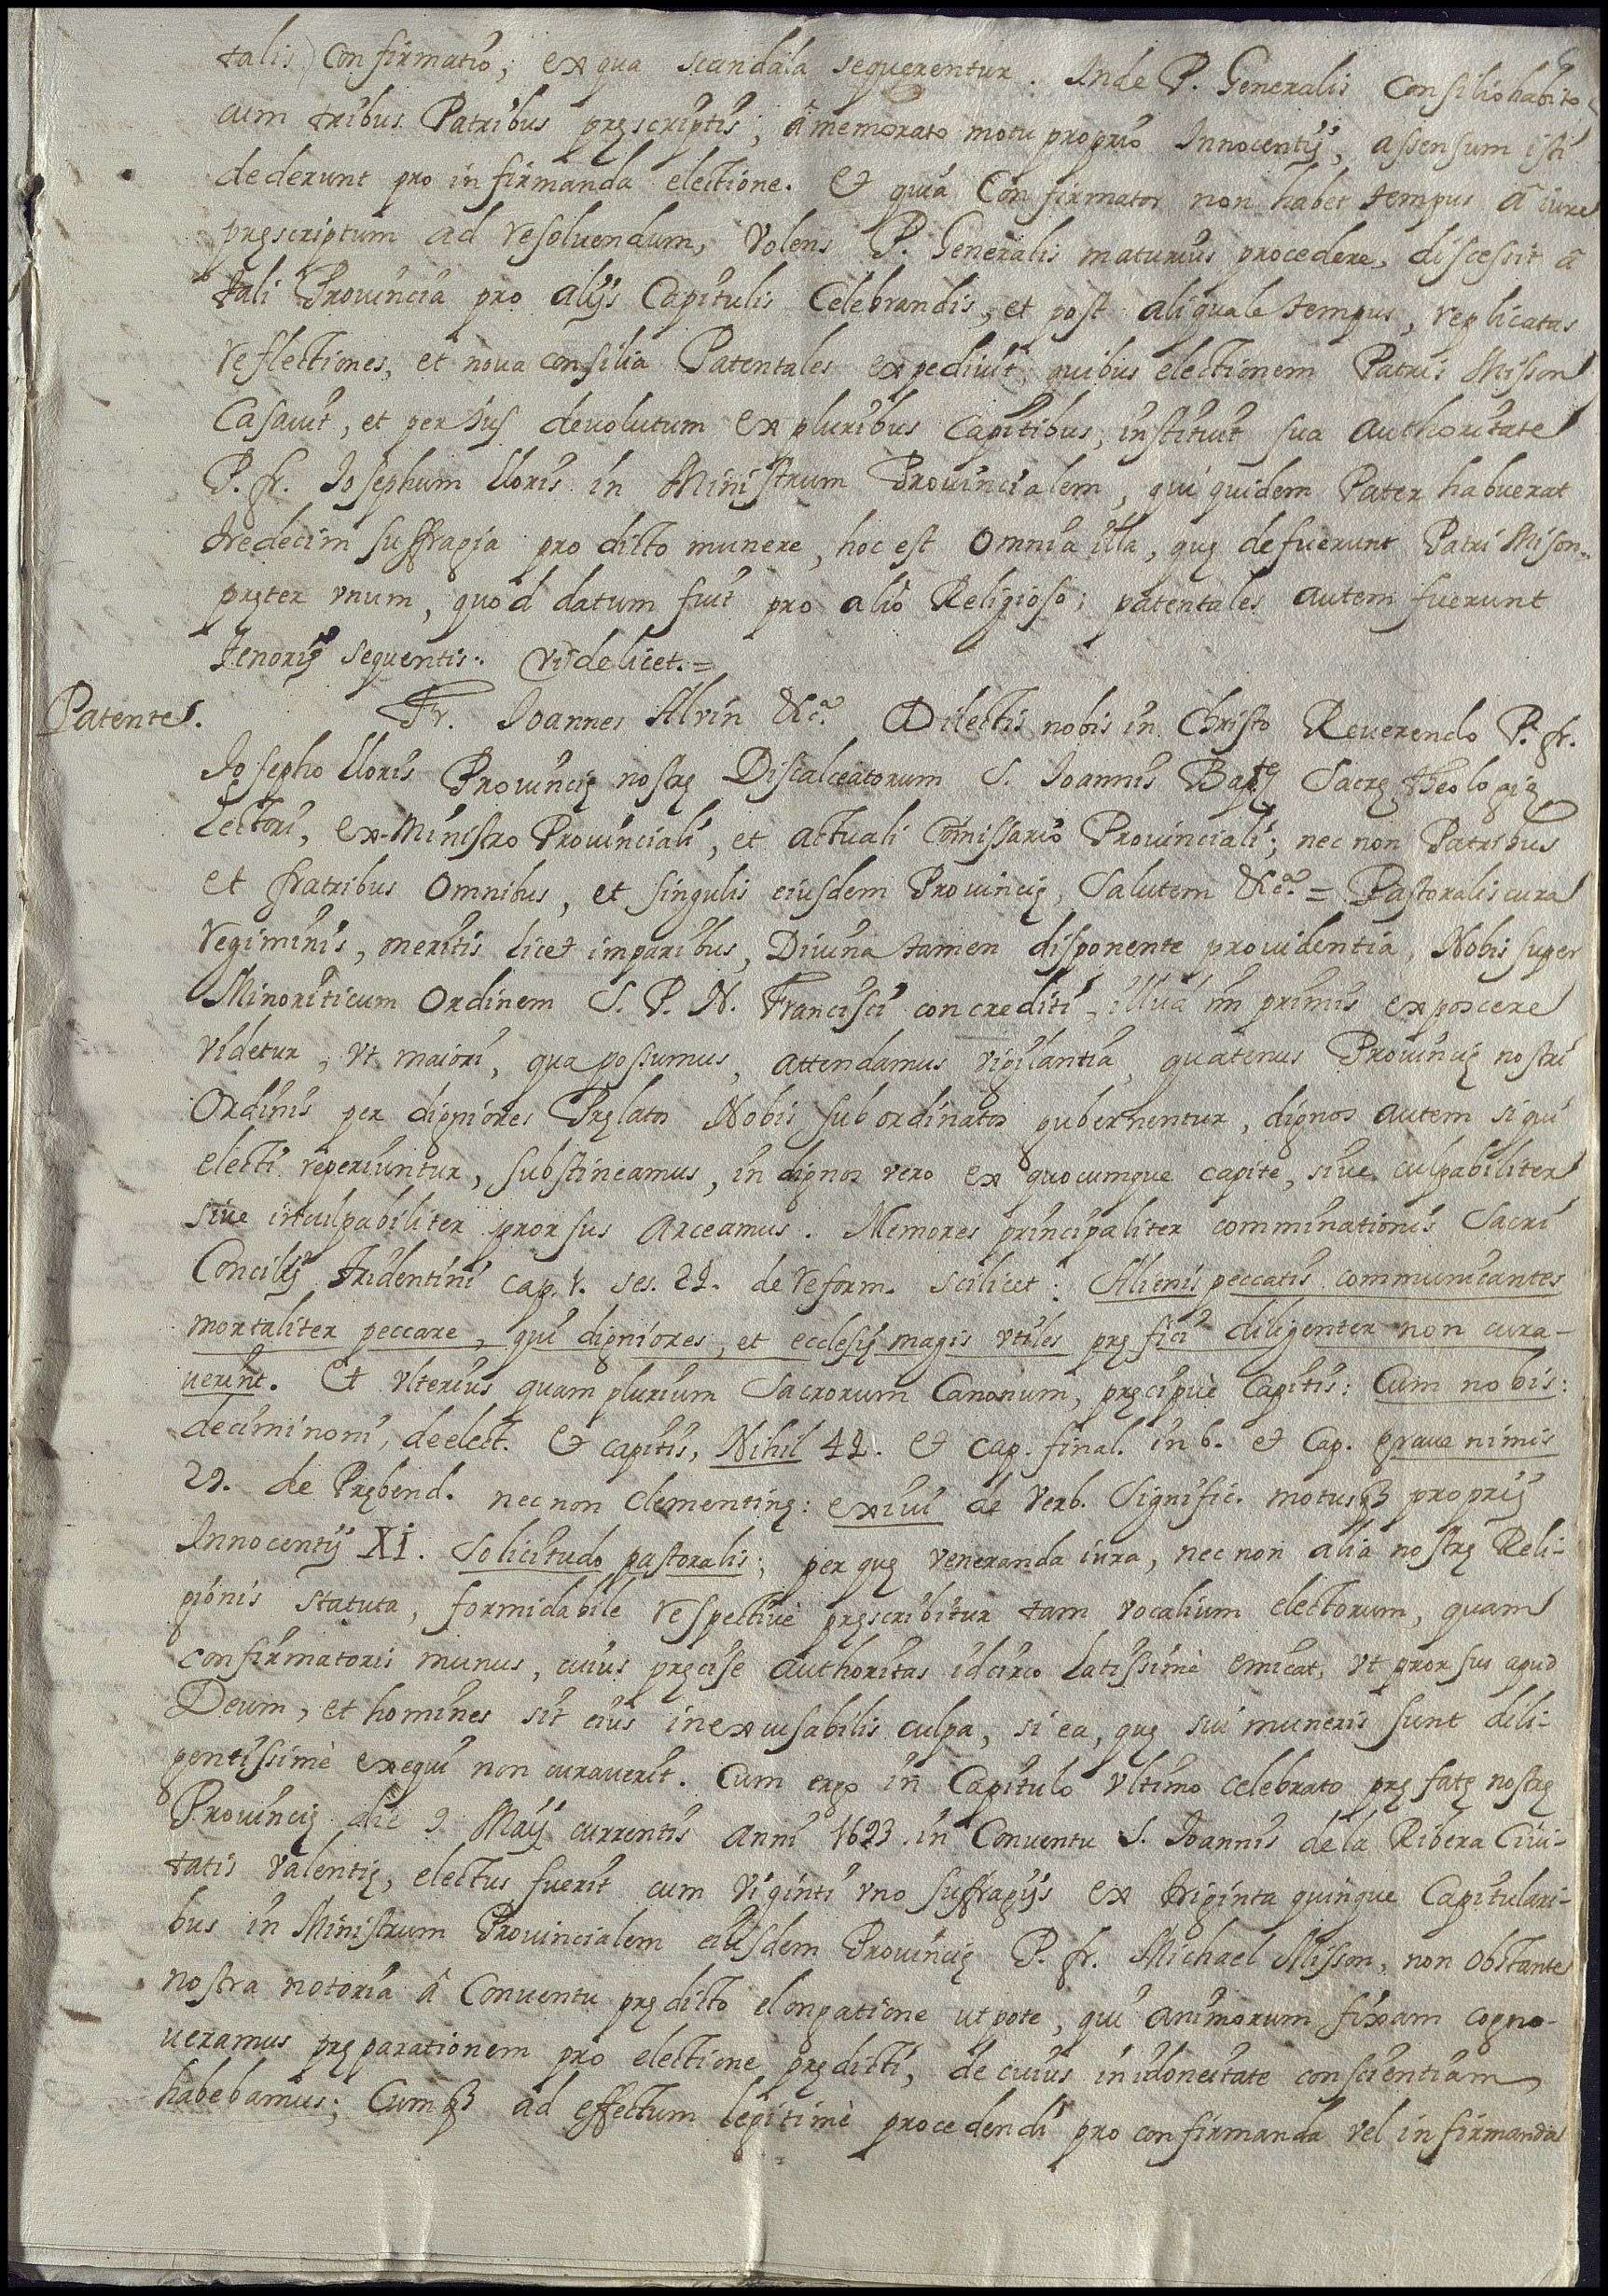 talis confirmatio; ex qua scandala sequerentur. Inde P. Generalis consilio habito
cum tribus Patribus pręscriptis; â memorato motu proprio Innocentij, assensum isti
dederunt pro infirmanda electione. Et quia Confirmator non habet tempus â iure
pręscriptum ad resoluendum, volens P. Generalis maturius procedere, discessit â
tali Prouincia pro alijs Capitulis Celebrandis, et post aliquale tempus, replicatas
reflectiones, et noua consilia Patentales expediuit, quibus electionem Patris Misson
Casauit, et per ius deuolutum ex pluribus Capitibus, instituit sua authoritate
P. fr. Iosephum lloris in Ministrum Prouincialem, qui quidem Pater habuerat
tredecim suffragia pro dicto munere, hoc est omnia illa, quę defuerunt Patri Mison
pręter vnum, quod datum fuit pro alio Religioso; patentales autem fuerunt
tenoris sequentis. Videlicet. =
Patente. Fr. Ioannes Alvin &c.ª Dilectis nobis in Christo Reuerendo P. fr.
Iosepho lloris Prouincię nostrę Discalceatorum S. Ioannis Bap.tę Sacrę Theologię
Lectori, ex-Ministro Prouinciali, et actuali Comissario Prouinciali; nec non Patribus
et fratribus omnibus, et singulis eiusdem Prouincię, Salutem &c.ª = Pastoralis cura
regiminis, meritis licet imparibus, Diuina tamen disponente prouidentia, Nobis super
Minoriticum Ordinem S. P. N. Francisci concrediti, illud in primis exposcere
videtur, vt maiori, qua possumus, attendamus vigilantia, quatenus Prouincię nostri
Ordinis per digniores Pręlatos Nobis subordinatos gubernentur, dignos autem si qui
electi reperiuntur, substineamus, indignos vero ex quocumque capite, siue culpabiliter
siue inculpabiliter prorsus arceamus. Memores principaliter comminationis Sacri
Concilij Tridentini cap. 1. ses. 24. de reform. scilicet: Alienis peccatis communicantes
mortaliter peccare, qui digniores, et ecclesię magis vtiles pręfici diligenter non cura-
uerint. Et vlterius quam plurium Sacrorum Canonum, pręcipuè Capitis: Cum nobis:
decimi noni, de elect. Et capitis, Nihil 44. et cap. final. in 6. et Cap. graue nimis
29. de Prębend. nec non Clementinę: exiui de Verb. Signific. motusq3 proprij
Innocentij XI. Solicitudo pastoralis; per quę veneranda iura, nec non alia nostrę Reli-
gionis statuta, formidabile respectiuè pręscribitur tam vocalium electorum, quam
confirmatoris munus, cuius pręcise authoritas idcirco latissimè emicat, vt prorsus apud
Deum, et homines sit eius inexcusabilis culpa, si ea, quę sui muneris sunt dili-
gentissimè exequi non curauerit. Cum ergo in Capitulo vltimo celebrato pręfatę nostrę
Prouincię die 9. Maij currentis anni 1693. in Conuentu S. Ioannis de la Ribera Ciui-
tatis Valentię, electus fuerit cum viginti vno suffragijs ex triginta quinque Capitulari-
bus in Ministrum Prouincialem eiusdem Prouincię P. fr. Michael Misson, non obstante
nostra notoria â Conuentu prędicto elongatione utpote, qui animorum fixam cogno-
ueramus pręparationem pro electione prędicti, de cuius inidoneitate conscientiam
habebamus; Cumq3 ad effectum legitimè procedendi pro confirmanda vel infirmanda